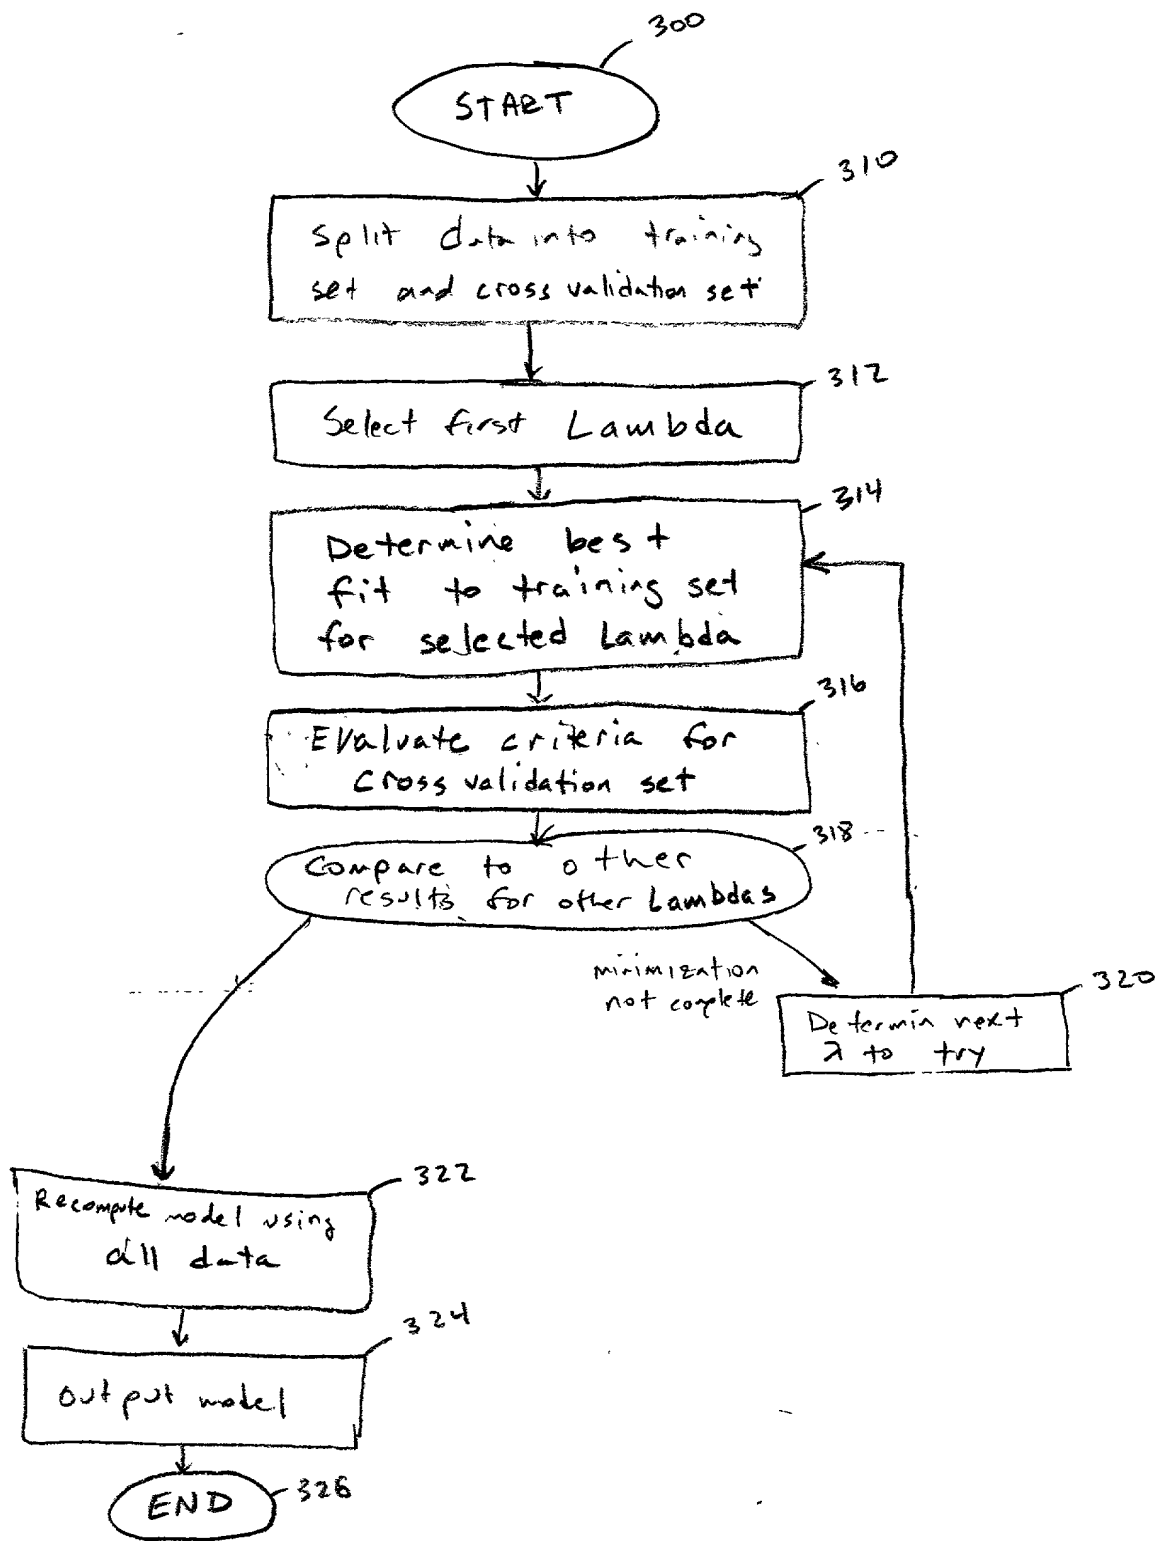 300
START
310
Split data into training
set and cross validation set
312
Select first Lambda
314
Determine best
fit to training set
for selected Lambda
316
Evaluate criteria for
cross validation set
318
Compare to other
results for other Lambdas
minimization
not complete
320
Determin next
λ to try
322
Recompute model using
all data
324
Output model
326
END